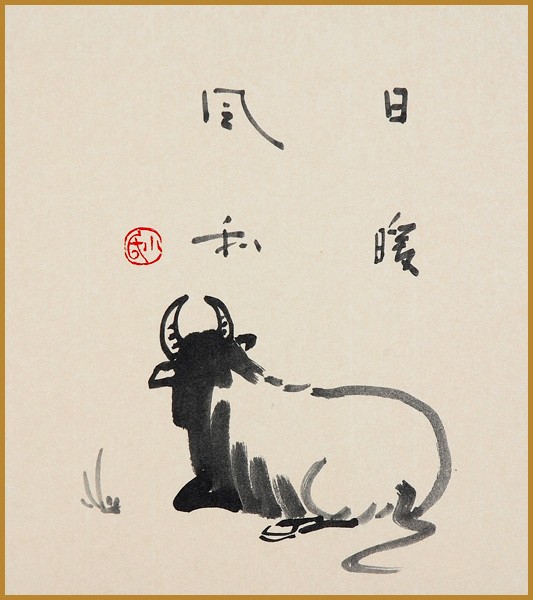 日暖
風和